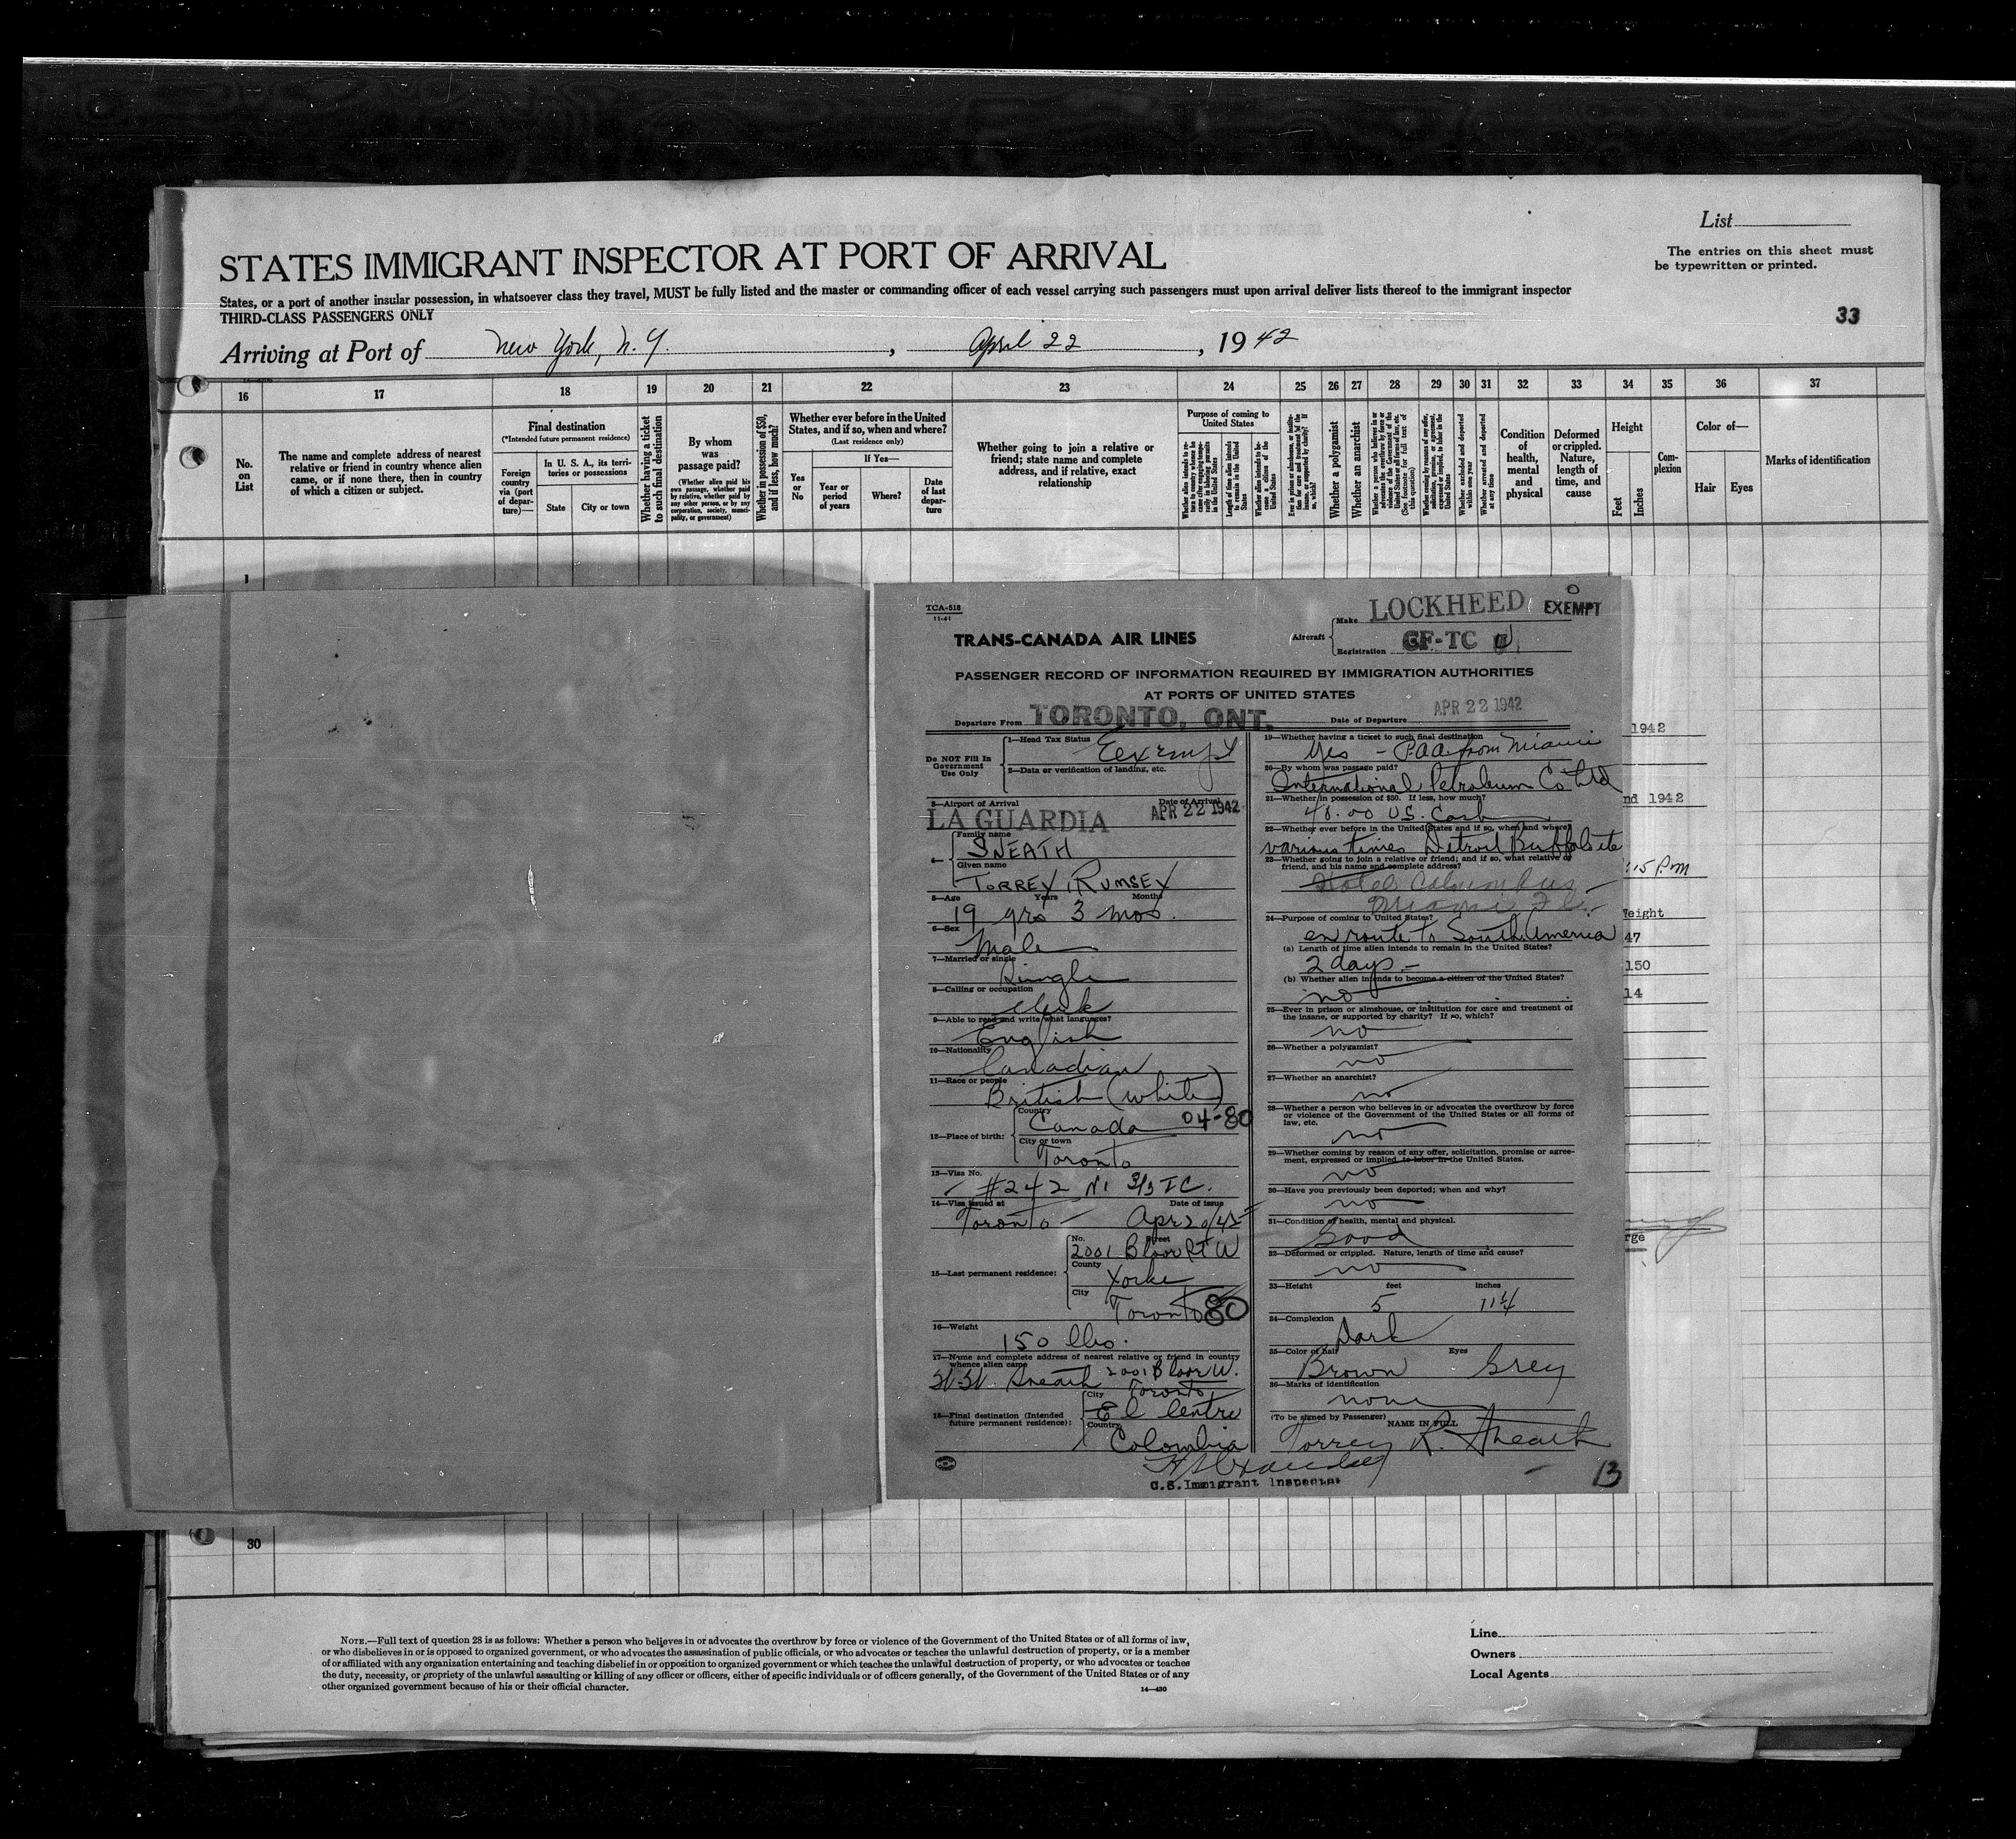 List
The entries on this sheet must
be typewritten or printed.
STATES IMMIGRANT INSPECTOR AT PORT OF ARRIVAL
States, or a port of another insular possession, in whatsoever class they travel, MUST be fully listed and the master or commanding officer of each vessel carrying such passengers must upon arrival deliver lists thereof to the immigrant inspector
THIRD-CLASS PASSENGERS ONLY
33
Arriving at Port of New York, N.Y. , April 22 , 1942
16 17 18 19 20 21 22 23 24 25 26 27 28 29 30 31 32 33 34 35 36 37
No. on List
The name and complete address of nearest relative or friend in country whence alien came, or if none there, then in country of which a citizen or subject.
Final destination
(*Intended future permanent residence)
Foreign country via (port of departure)—
In U. S. A., its territories or possessions
State
City or town
Whether having a ticket to such final destination
By whom was passage paid?
(Whether alien paid his own passage, whether paid by relative, whether paid by any other person, or by any corporation, society, municipality, or government)
Whether in possession of $50, and if less, how much?
Whether ever before in the United States, and if so, when and where?
(Last residence only)
If Yes—
Yes or No
Year or period of years
Where?
Date of last departure
Whether going to join a relative or friend; state name and complete address, and if relative, exact relationship
Purpose of coming to United States
Whether alien intends to return to country whence he came after engaging temporarily in laboring pursuits in the United States
Length of time alien intends to remain in the United States
Whether alien intends to become a citizen of the United States
Whether a polygamist
Whether an anarchist
Whether excluded and deported within one year
Whether arrested and deported at any time
Condition of health, mental and physical
Deformed or crippled. Nature, length of time, and cause
Height
Feet
Inches
Complexion
Color of—
Hair
Eyes
Marks of identification
1
TCA-518
11-41
TRANS-CANADA AIR LINES
Aircraft
Make LOCKHEED
EXEMPT
Registration CF-TC
PASSENGER RECORD OF INFORMATION REQUIRED BY IMMIGRATION AUTHORITIES
AT PORTS OF UNITED STATES
Departure From TORONTO, ONT.
Date of Departure APR 22 1942
Do NOT Fill In
Government
Use Only
1—Head Tax Status
Eexempt
2—Data or verification of landing, etc.
3—Airport of Arrival
Date of Arrival
LA GUARDIA APR 22 1942
4—
Family name
SNEATH
Given name
TORREY, RUMSEY
5—Age Years Months
19 yrs 3 mos.
6—Sex
Male
7—Married or single
Single
8—Calling or occupation
Clerk
9—Able to read and write what languages?
English
10—Nationality
Canadian
11—Race or people
British (white)
12—Place of birth:
Country
Canada 04-80
City or town
Toronto
13—Visa No.
#242
14—Visa issued at Date of issue
Toronto Apr 20/42
15—Last permanent residence:
No. Street
2001 Bloor St W
County
Yorke
City
Toronto 80
16—Weight
150 lbs.
17—Name and complete address of nearest relative or friend in country
whence alien came
Sneath 2001 Bloor W.
Toronto
18—Final destination (Intended
future permanent residence):
City
El Centro
Country
Colombia
U.S. Immigrant Inspector
19—Whether having a ticket to such final destination
Yes – P.A.A. from Miami
20—By whom was passage paid?
International Petroleum Co Ltd
21—Whether in possession of $50. If less, how much?
48.00 U.S. Cash
22—Whether ever before in the United States and if so, when and where?
various times Detroit Buffalo etc
23—Whether going to join a relative or friend; and if so, what relative or
friend, and his name and complete address?
Hotel Columbus
Miami Fl.
24—Purpose of coming to United States?
en route to South America
(a) Length of time alien intends to remain in the United States?
2 days.
(b) Whether alien intends to become a citizen of the United States?
no
25—Ever in prison or almshouse, or institution for care and treatment of
the insane, or supported by charity? If so, which?
no
26—Whether a polygamist?
no
27—Whether an anarchist?
no
28—Whether a person who believes in or advocates the overthrow by force
or violence of the Government of the United States or all forms of
law, etc.
no
29—Whether coming by reason of any offer, solicitation, promise or agreement,
expressed or implied, to labor in the United States.
no
30—Have you previously been deported; when and why?
no
31—Condition of health, mental and physical.
Good
32—Deformed or crippled. Nature, length of time and cause?
no
33—Height feet inches
5 11¼
34—Complexion
Dark
35—Color of hair Eyes
Brown Grey
36—Marks of identification
none
(To be signed by Passenger) NAME IN FULL
Torrey R. Sneath
13
1942
nd 1942
:15 P.m
Weight
47
150
14
rge
30
NOTE.—Full text of question 28 is as follows: Whether a person who believes in or advocates the overthrow by force or violence of the Government of the United States or of all forms of law,
or who disbelieves in or is opposed to organized government, or who advocates the assassination of public officials, or who advocates or teaches the unlawful destruction of property, or is a member
of or affiliated with any organization entertaining and teaching disbelief in or opposition to organized government or which teaches the unlawful destruction of property, or who advocates or teaches
the duty, necessity, or propriety of the unlawful assaulting or killing of any officer or officers, either of specific individuals or of officers generally, of the Government of the United States or of any
other organized government because of his or their official character.
14—430
Line
Owners
Local Agents